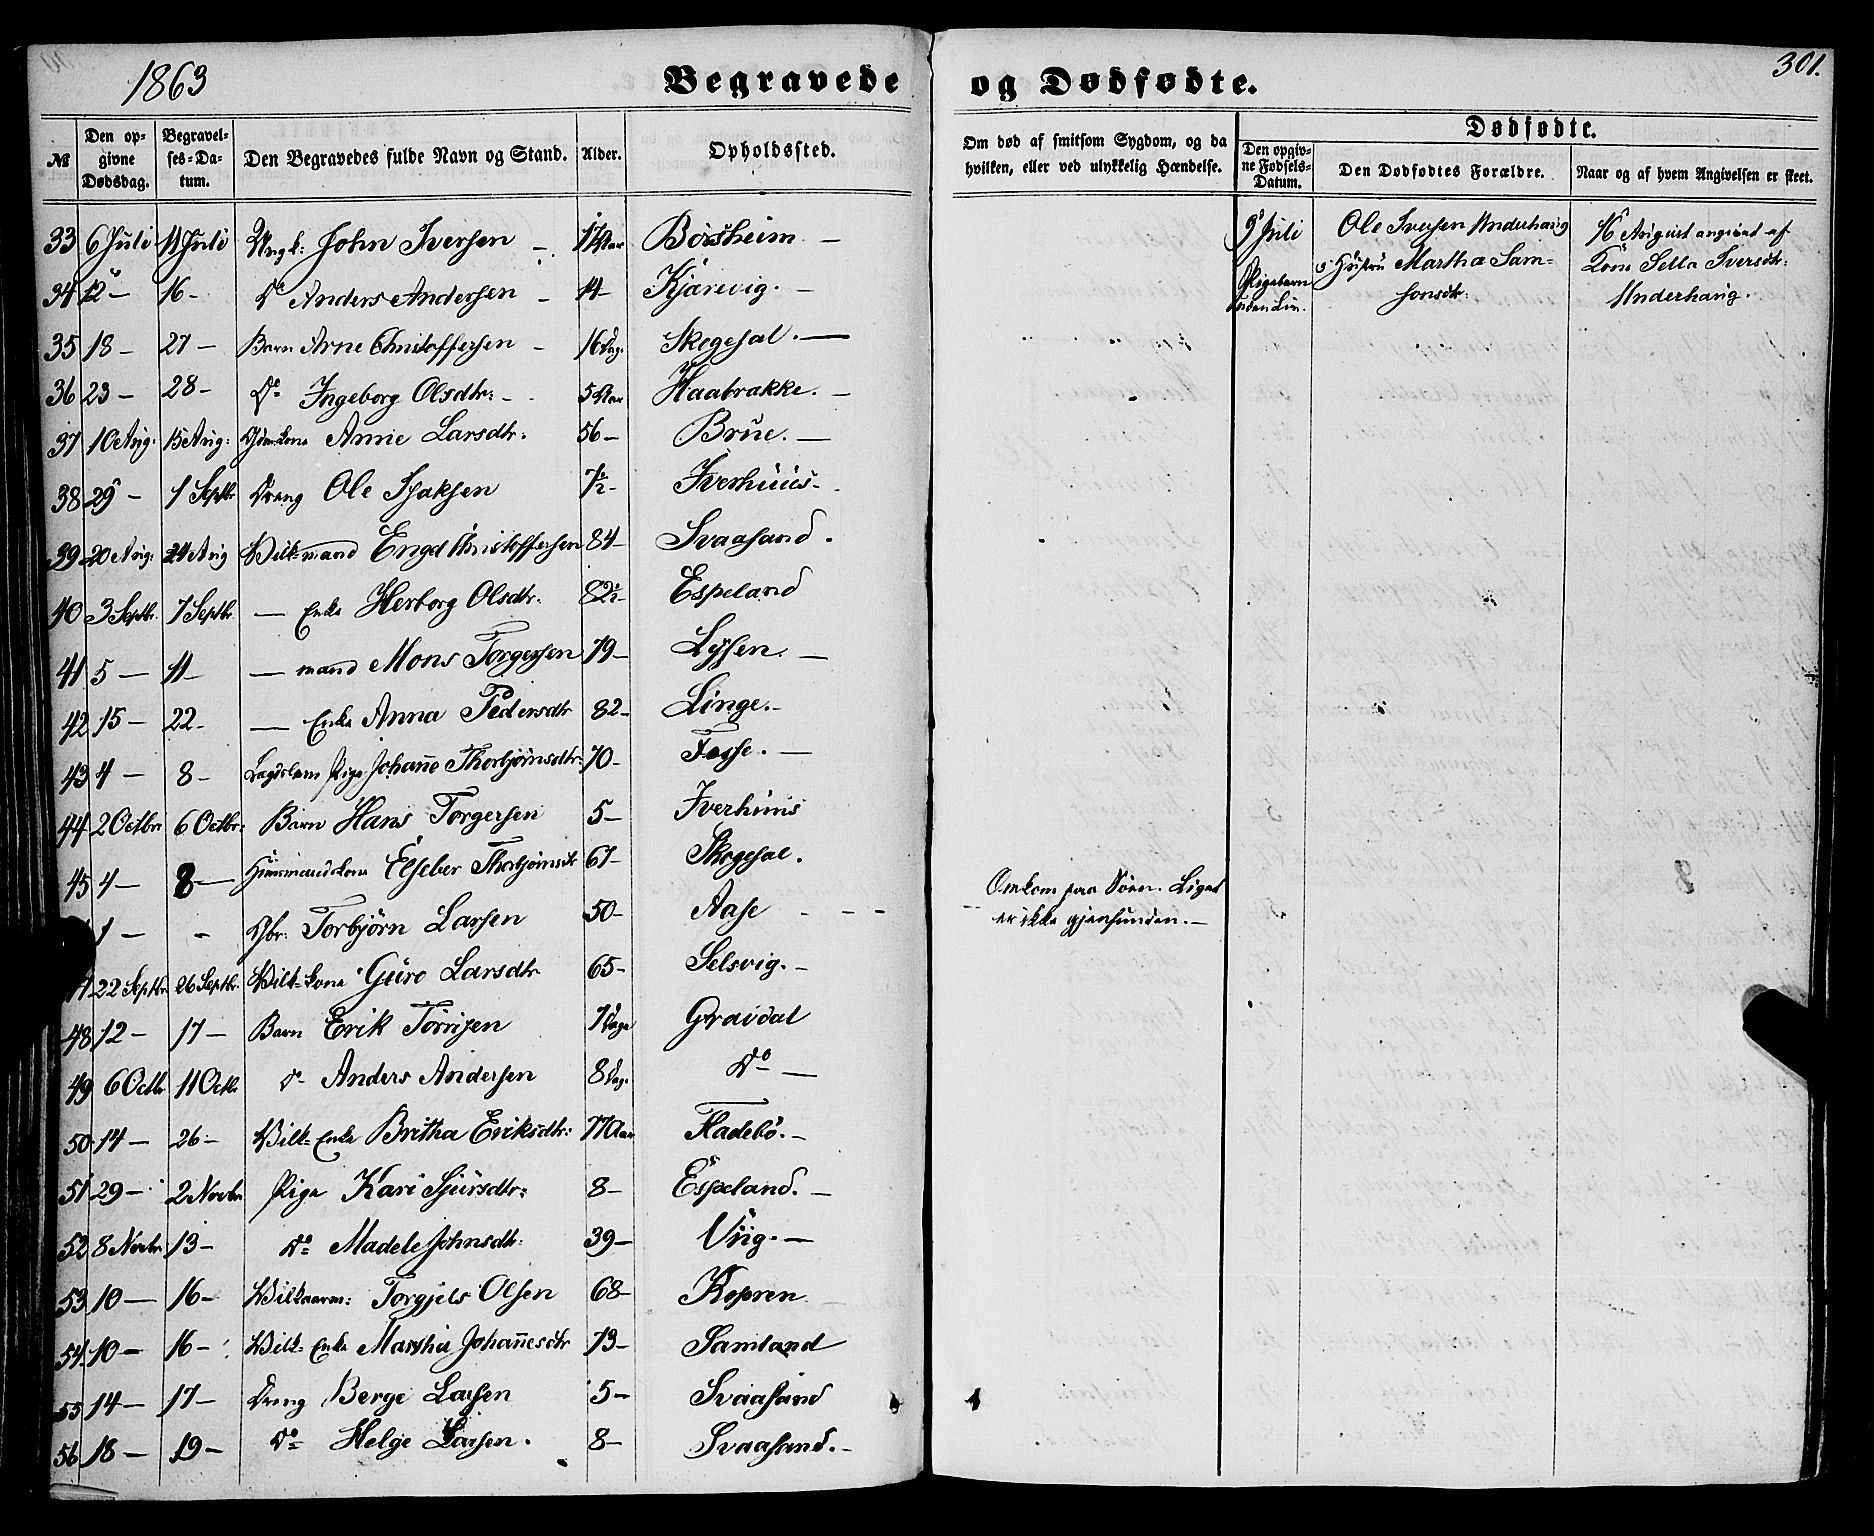 1863 Begravede og Dødfødte. 301.
№ Den opgivne Dødsdag. Begravelses-Datum. Den Begravedes fulde Navn og Stand. Alder. Opholdssted. Om død af smitsom Sygdom, og da hvilken, eller ved ulykkelig Hændelse. Dødfødte. Den opgivne Fødsels-Datum. Den Dødfødtes Forældre. Naar og af hvem Angivelsen er skeet.
33 6 Juli 11 Juli Ungk: John Iversen Borsheim
34 12 - 16 - Do Anders Andersen 14 - Kjærevig. -
35 18 - 27 - Barn Arne Christoffersen - 16 Dag. Skogesal. -
36 23 - 28 - Do Ingeborg Olsdtr: - 5 Aar Haabrakke. -
37 10 Aug: 15 Aug: Anne Larsdtr. 56 - Brue. -
38 29 - 1 Septbr Dreng Ole Isaksen 7½ - Iverhuus -
39 20 Aug: 24 Aug Vilk-mand Engel Christoffersen 84 - Svaasand.
40 3 Septbr. 7 Septbr - Enke Herborg Olsdtr. 82½ - Espeland
41 5 - 11 - - mand Mons Torgersen 79 - Lysen. -
42 15 - 22 - - Enke Anna Pedersdtr 82 - Linge. -
43 4 - 8 - Lægdslem Pige Johañe Thorbjørnsdtr: 70 - Fosse. -
44 2 Octbr 6 Octbr: Barn Hans Torgersen 5 - Iverhuus
45 4 - 8 - Huusmandskone Elseber Thorbjørnsdtr 67 - Skogesal.
1 - - Gbr: Torbjørn Larsen 50 - Aase - - - Omkom paa Søen. Liget
er ikke gjenfunden. -
22 Septbr 26 Septbr. Vilk-kone Guro Larsdtr 65 - Selsvig. -
48 12 - 17 - Barn Erik Torrisen 7 Dage Gravdal
49 6 Octbr 11 Octbr Do Anders Andersen 8 Dag. Do -
50 14 - 26 - Vilk- Enke Britha Eriksdtr: 77 Aar Fladebø. -
51 29 - 2 Novbr Pige Kari Sjursdtr: 8 - Espeland. -
52 8 Novbr 13 - Do Madele Johnsdtr. 39 - Viig. -
53 10 - 16 - Vilkaarm: Torgjels Olsen 68 - Kopren
54 10 - 16 - Vilk- Enke Martha Johañesdtr 73 - Samland
55 14 - 17 - Dreng Berge Larsen 5 - Svaasand
56 18 - 19 - Do Helge Larsen. 8 - Svaasand. -
9 Juli Ole Iversen Underhaug 16 August angivet af
Pigebarn uden Liv. Hustru Martha Sam- Kone Sella Iversdtr.
sonsdtr. Underhaug.